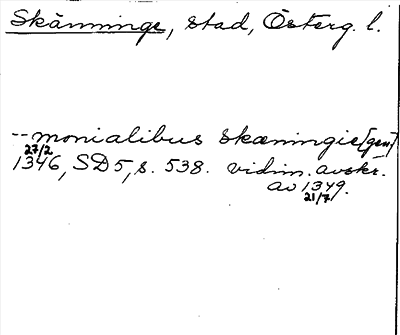 Skänninge, stad, Österg. l.
-- monialibus skæningie [gen]
27/2
1346, SD 5, s. 538. vidim. avskr.
av 1349.
21/7